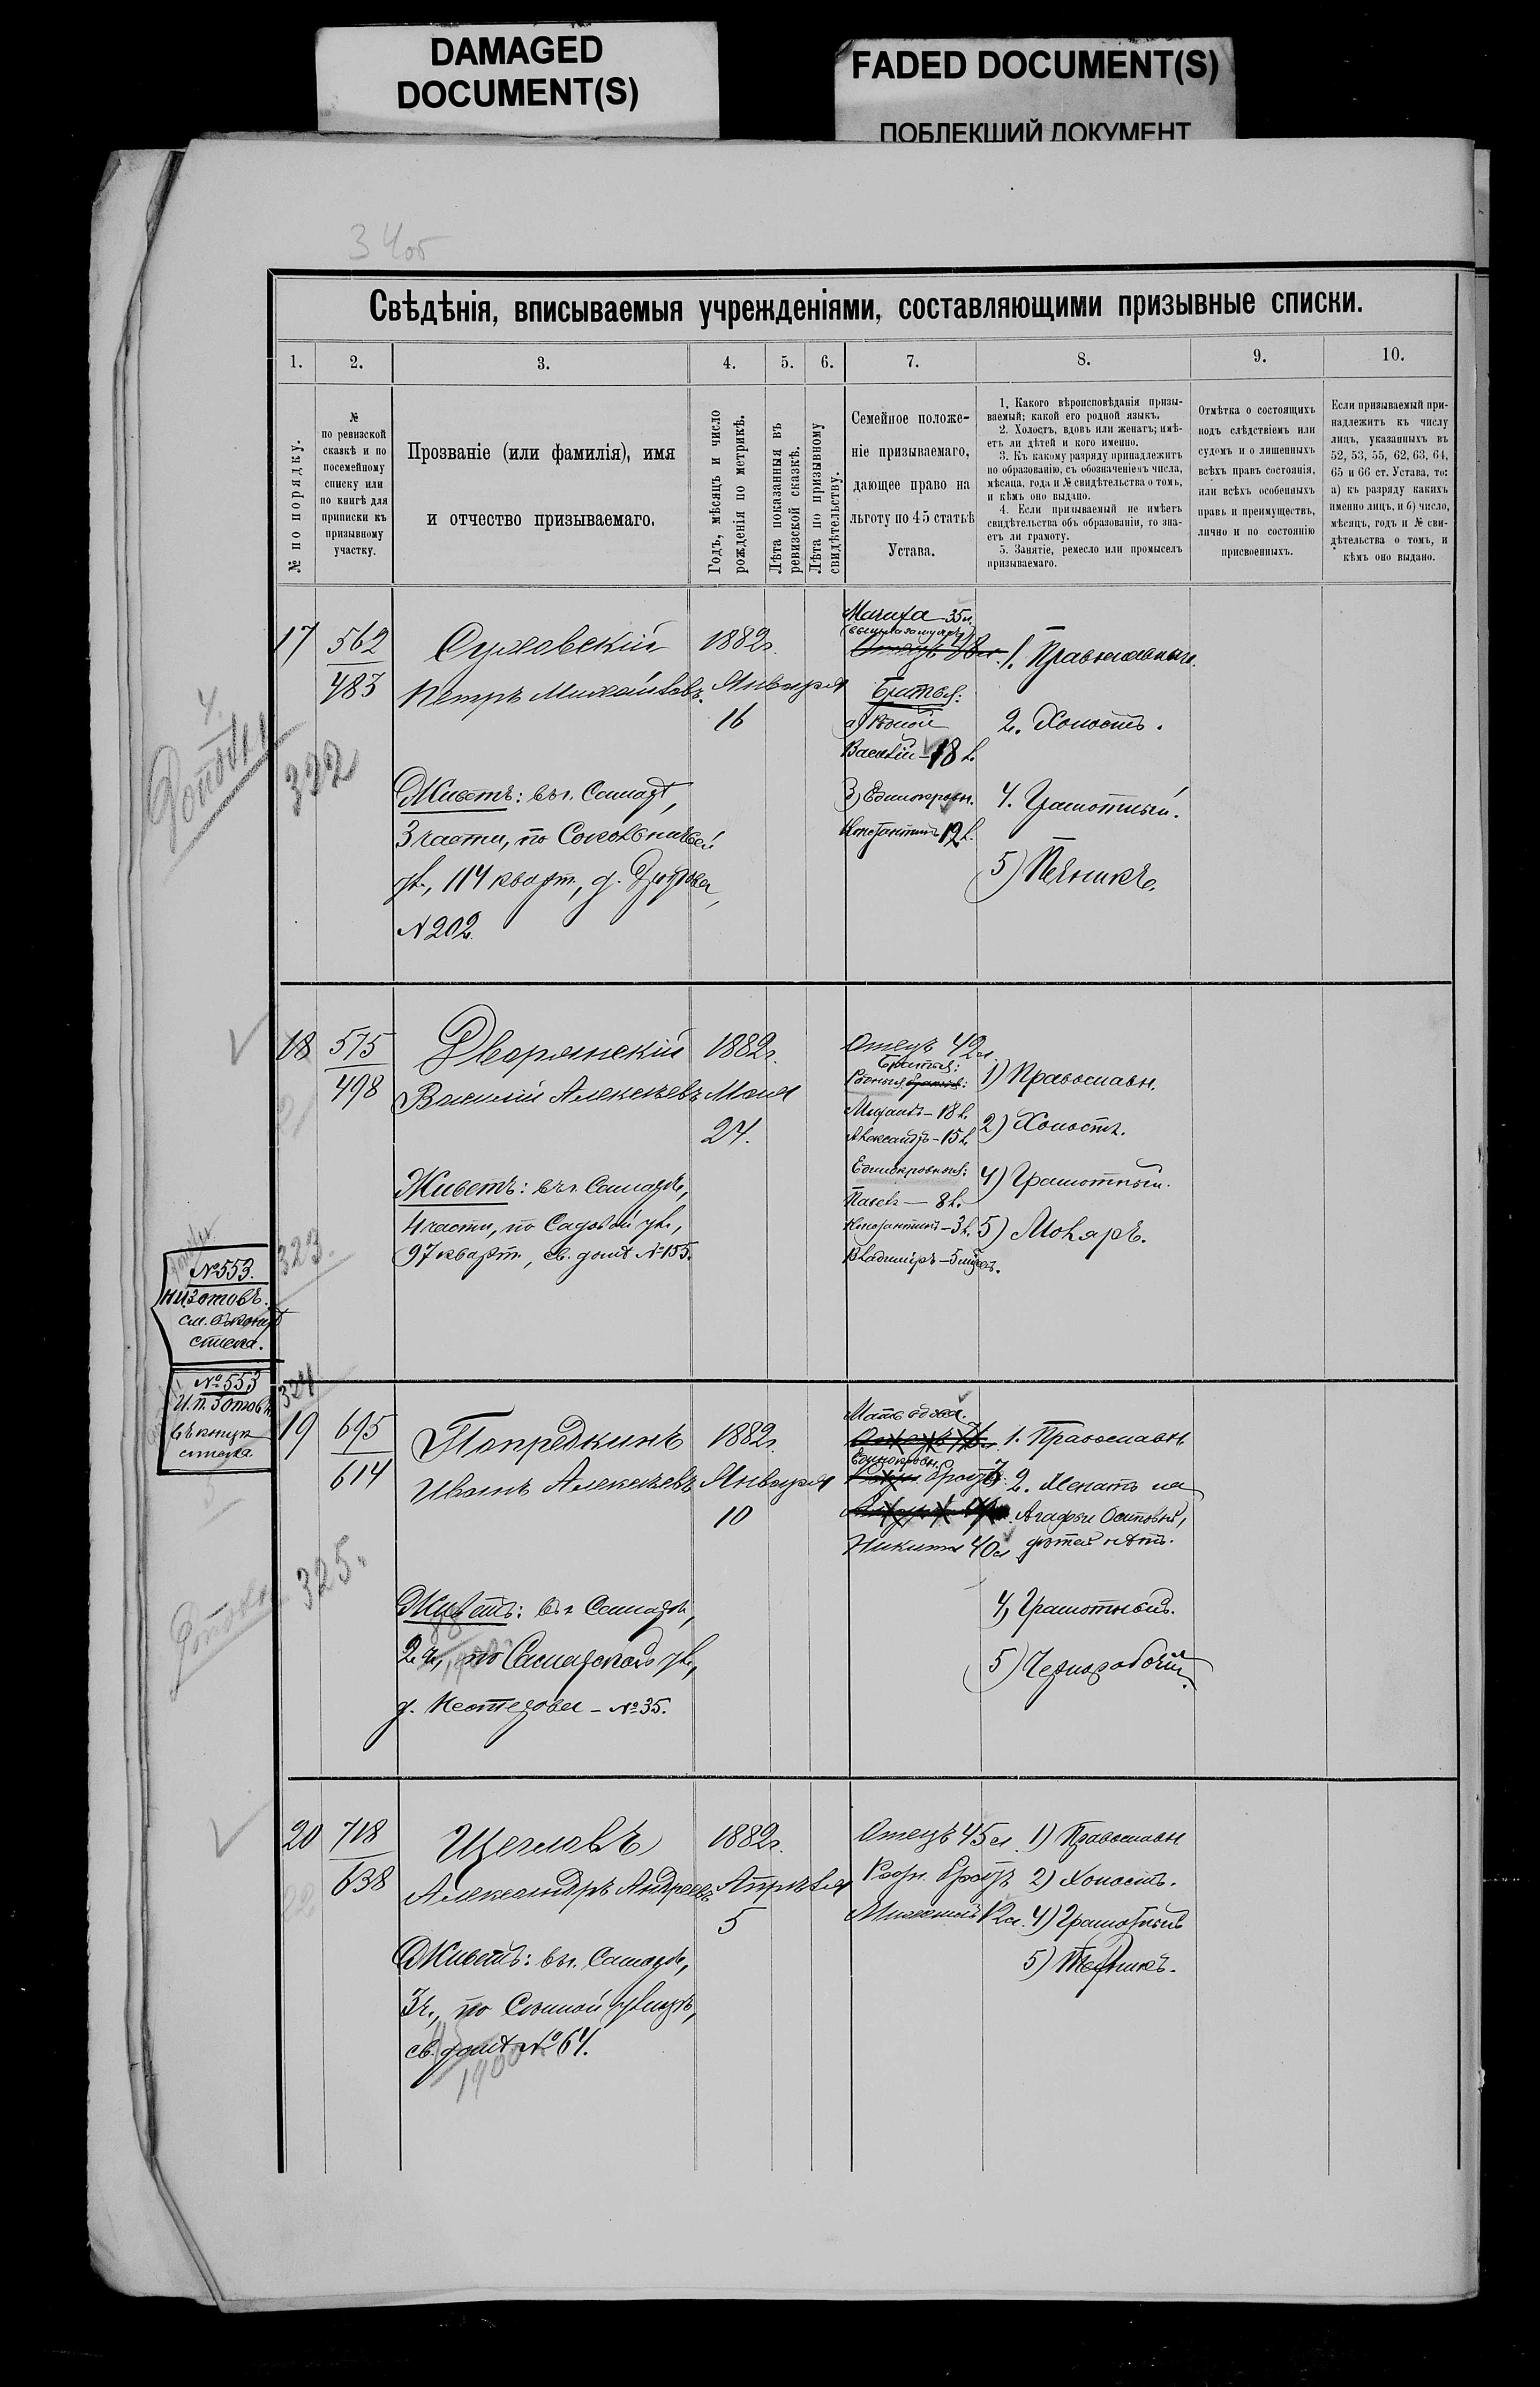 DAMAGED
DOCUMENT(S)
FADED DOCUMENT(S)
ПОБЛЕКШИЙ ДОКУМЕНТ
34об
Свѣдѣнія, вписываемыя учрежденіями, составляющими призывные списки.
1. 2. 3. 4. 5. 6. 7. 8. 9. 10.
№ по порядку.
№
по ревизской
сказкѣ и по
посемейному
списку или
по книгѣ для
приписки къ
призывному
участку.
Прозваніе (или фамилія), имя
и отчество призываемаго.
Годъ, мѣсяцъ и число
рожденія по метрикѣ.
Лѣта показанныя въ
ревизской сказкѣ.
Лѣта по призывному
свидѣтельству.
Семейное положе-
ніе призываемаго,
дающее право на
льготу по 45 статьѣ
Устава.
1. Какого вѣроисповѣданія призы-
ваемый; какой его родной языкъ.
2. Холостъ, вдовъ или женатъ; имѣ-
етъ ли дѣтей и кого именно.
3. Къ какому разряду принадлежитъ
по образованію, съ обозначеніемъ числа,
мѣсяца, года и № свидѣтельства о томъ,
и кѣмъ оно выдано.
4. Если призываемый не имѣетъ
свидѣтельства объ образованіи, то зна-
етъ ли грамоту.
5. Занятіе, ремесло или промыселъ
призываемаго.
Отмѣтка о состоящихъ
подъ слѣдствіемъ или
судомъ и о лишенныхъ
всѣхъ правъ состоянія,
или всѣхъ особенныхъ
правъ и преимуществъ,
лично и по состоянію
присвоенныхъ.
Если призываемый при-
надлежитъ къ числу
лицъ, указанныхъ въ
52, 53, 55, 62, 63, 64,
65 и 66 ст. Устава, то:
а) къ разряду какихъ
именно лицъ, и б) число,
мѣсяцъ, годъ и № сви-
дѣтельства о томъ, и
кѣмъ оно выдано.
17
562
483
322
Петръ Михайловъ.
Живетъ: въ г. Самарѣ,
3 части, по Сокольничьей
ул., 114 кварт., д.
№ 202
1882 г.
Января
16
Мачиха 35 л.
Братья:
а) Родной
Василій – 18 л.
Единокровн.
Константинъ 12 л.
1. Православный.
2. Холостъ.
4. Грамотный.
5) Печникъ.
18
575
498
323.
Дворянскій
Василій Алексѣевъ
Живетъ: въ г. Самарѣ,
4 части, по Садовой ул.,
97 кварт., св. домъ № 155.
1882 г.
Мая
24.
Отецъ 42 л.
Братья:
Родныя
Михаилъ – 18 л.
Александръ – 15 л.
Единокровныя:
Павелъ — 8 л.
Константинъ – 3 л.
Владиміръ – 5 мѣсяц.
1) Православн.
2) Холостъ.
4) Грамотный.
5) Маляръ.
№ 553.
Изотовъ.
см. въ концѣ
списка.
№ 553
Изотовъ
въ концѣ
списка.
324
19
695
614
325.
Попредкинъ
Иванъ Алексѣевъ
Живетъ: въ г. Самарѣ,
2 ч., по Самарской ул.,
№ 35.
1882 г.
Января
10
Мать
Единокровн.
братъ
Никита 40 л
1. Православн.
2. Женатъ на
Агафьи Осиповой,
дѣтей нѣтъ.
4) Грамотный.
5) Чернорабочій.
20
718
638
Щегловъ
Александръ Андреевъ
Живетъ: въ г. Самарѣ,
3 ч., по Сѣнной улицѣ,
св. домъ № 64.
1900
1882 г.
Апрѣля
5
Отецъ 45 л.
Родн. братъ
Михаилъ 12 л.
1) Православн
2) Холостъ.
4) Грамотный
5)